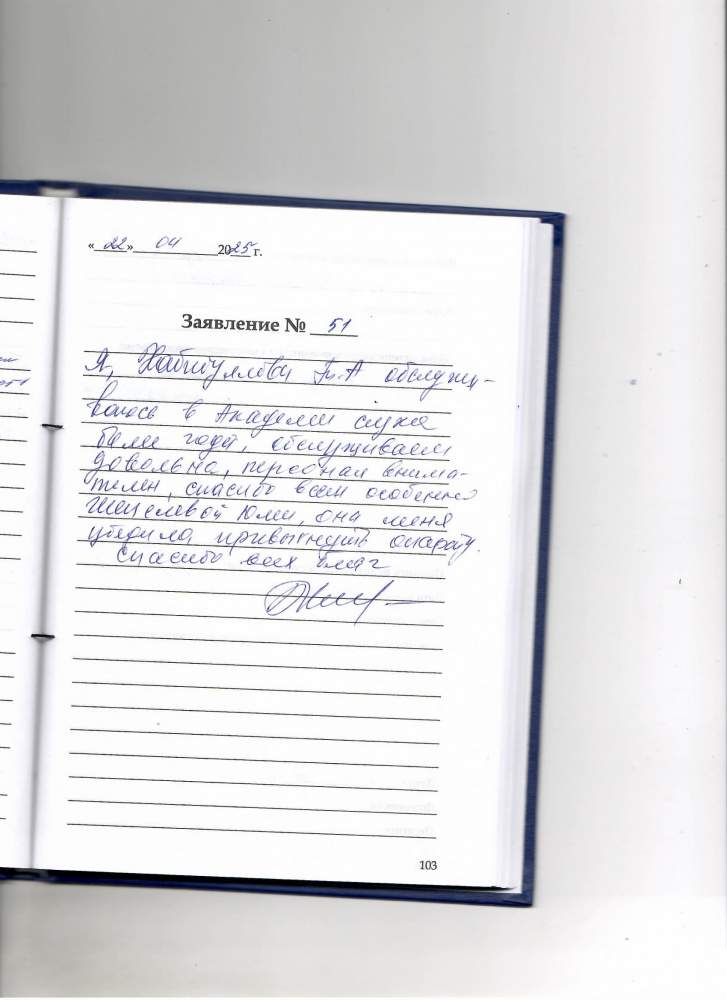 «22» 04 2025 г.
Заявление № 51
Я, Хабибуллова Г.А обслужи-
ваюсь в Академии слуха
более года, обслуживаем
довольна, персонал внима-
телен, спасибо всем особенно
Шешелевой Юлии, она меня
убедила привыкнуть опарату.
Спасибо всех благ
103